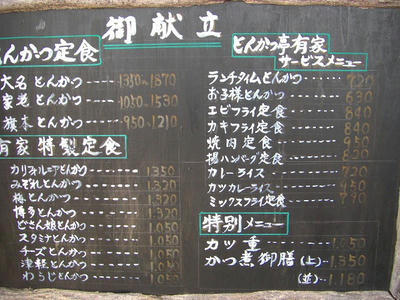 御献立
とんかつ定食
大名とんかつ・・・・1350〜1870
家老とんかつ・・・・1050〜1530
旗本とんかつ・・・・950〜1210
有家特製定食
カリフォルニアとんかつ・・・・1.350
みぞれとんかつ・・・・1.320
梅とんかつ・・・・1.320
博多とんかつ・・・・1.320
どさん娘とんかつ・・・・1.050
スタミナとんかつ・・・・1.050
チーズとんかつ・・・・1.050
津軽とんかつ・・・・1.050
わらじとんかつ・・・・1.180
とんかつ亭有家
サービスメニュー
ランチタイムとんかつ・・720
お子様とんかつ・・・・630
エビフライ定食・・・・840
カキフライ定食・・・・840
焼肉定食・・・・950
揚ハンバーグ定食・・820
カレーライス・・・・720
カツカレーライス・・950
ミックスフライ定食・・790
特別メニュー
カツ重・・・・1.050
かつ煮御膳(上)・・1.350
(並)・・1.180